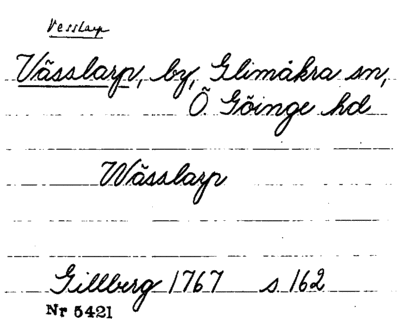 Vesslarp
Vässlarp, by, Glimåkra sn,
Ö Göinge hd
Wässlarp
Gillberg 1767 s 162
Nr 5421